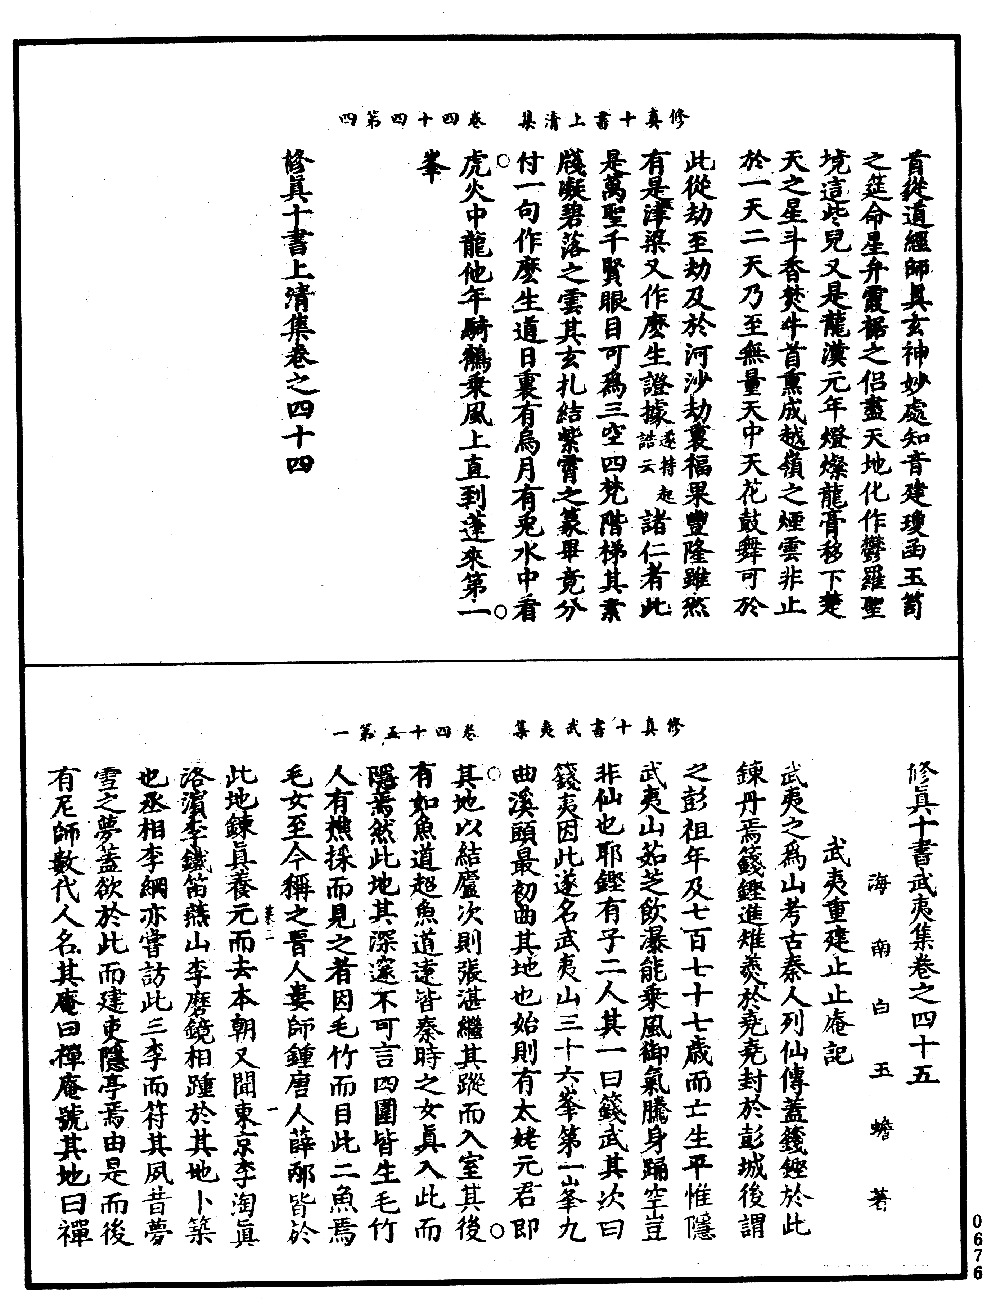 修真十書上清集　卷四十四第四
首從道經師真玄神妙處知音建瓊函玉笥
之筵命星弁霞裾之侶盡天地化作鬱羅聖
境這些兒又是龍漢元年燈燦龍膏移下楚
天之星斗香焚牛首熏成越嶺之煙雲非止
於一天二天乃至無量天中天花鼓舞可於
此從劫至劫及於河沙劫裏福果豐隆雖然
有是津梁又作麼生證據遂持起誥云諸仁者此
是萬聖千賢眼目可為三空四梵階梯其素
牋凝碧落之雲其玄扎結紫霄之篆畢竟分
付一句作麼生道日裏有烏月有兎水中看
虎火中龍他年騎鶴乘風上直到蓬來第一
峯
修真十書上清集卷之四十四
修真十書武夷集　卷四十五第一
修真十書武夷集卷之四十五
海南白玉蟾著
武夷重建止止庵記
武夷之為山考古秦人列仙傳蓋籛鏗於此
鍊丹焉籛鏗進雉羹於堯堯封於彭城後謂
之彭祖年及七百七十七歲而亡生平惟隱
武夷山茹芝飲瀑能乘風御氣騰身踊空豈
非仙也耶鏗有子二人其一曰籛武其次曰
籛夷因此遂名武夷山三十六峯第一峯九
曲溪頭最初曲其地也始則有太姥元君即
其地以結廬次則張湛繼其蹤而入室其後
有如魚道超魚道遠皆秦時之女真入此而
隱焉然此地其深邃不可言四圍皆生毛竹
人有樵採而見之者因毛竹而目此二魚焉
毛女至今稱之晉人婁師鍾唐人薛邴皆於
此地鍊真養元而去本朝又聞東京李淘真
洛濱李鐵笛燕山李磨鏡相踵於其地卜築
也丞相李綱亦嘗訪此三李而符其夙昔夢
雪之夢蓋欲於此而建吏隱亭焉由是而後
有尼師數代人名其庵曰禪庵號其地曰禪
0676